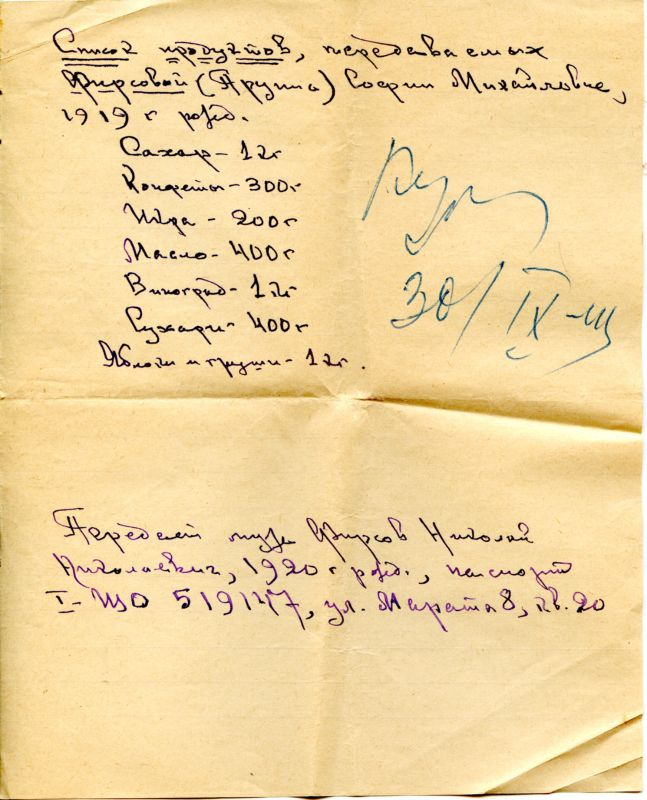 Список продуктов, передаваемых
Фирсовой (Друпп) Софии Михайловне,
1919 г рожд.
Сахар - 1 кг
Конфеты - 300 г
Масло - 400 г
Виноград - 1 кг
Сухари - 400 г
Яблоки и груши - 1 кг.
30/IX-
Передает муж Фирсов Николай
Николаевич, 1920 г рожд., паспорт
519147, ул. Марата 8, кв. 20